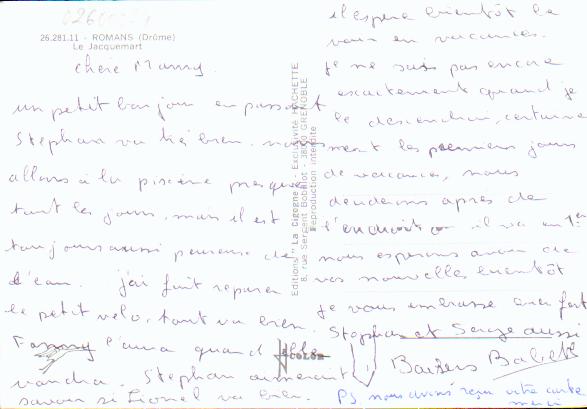 26.281.11 - ROMANS (Drôme)
Le Jacquemart
chère Manny.
un petit bonjour en passant
Stephan va très bien. nous
allons à la piscine presque
tout les jours, mais il est
toujours aussi peureux de
l'eau. j'ai fait reparer
le petit velo, tout va bien.
Fanny l'aura quand elle
voudra. Stephan aimerait
savoir si Lionel va bien.
Editions "La Cigogne" - Exclusivité HACHETTE
8, rue Sergent Bobillot - 38000 GRENOBLE
Reproduction interdite
il espère bientôt le
voir en vacances.
je ne sais pas encore
exactement quand je
le descendrai, certaine
ment les premiers jours
de vacances, nous
deciderons après de
l'endroit où il va en 1er
nous esperons avoir de
vos nouvelles bientôt
je vous embrasse bien fort
Stephan et Serge aussi
Baisers Babeth
PS nous avons reçu votre carte
merci